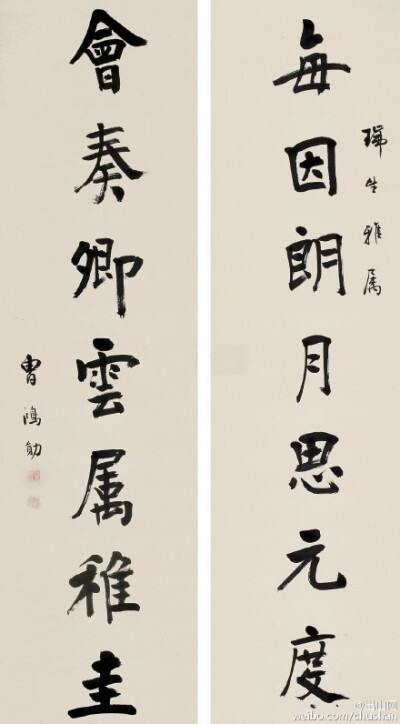 生雅属
每因朗月思元度
會奏卿雲属稚圭
曹鴻勛
weibo.com/chushan